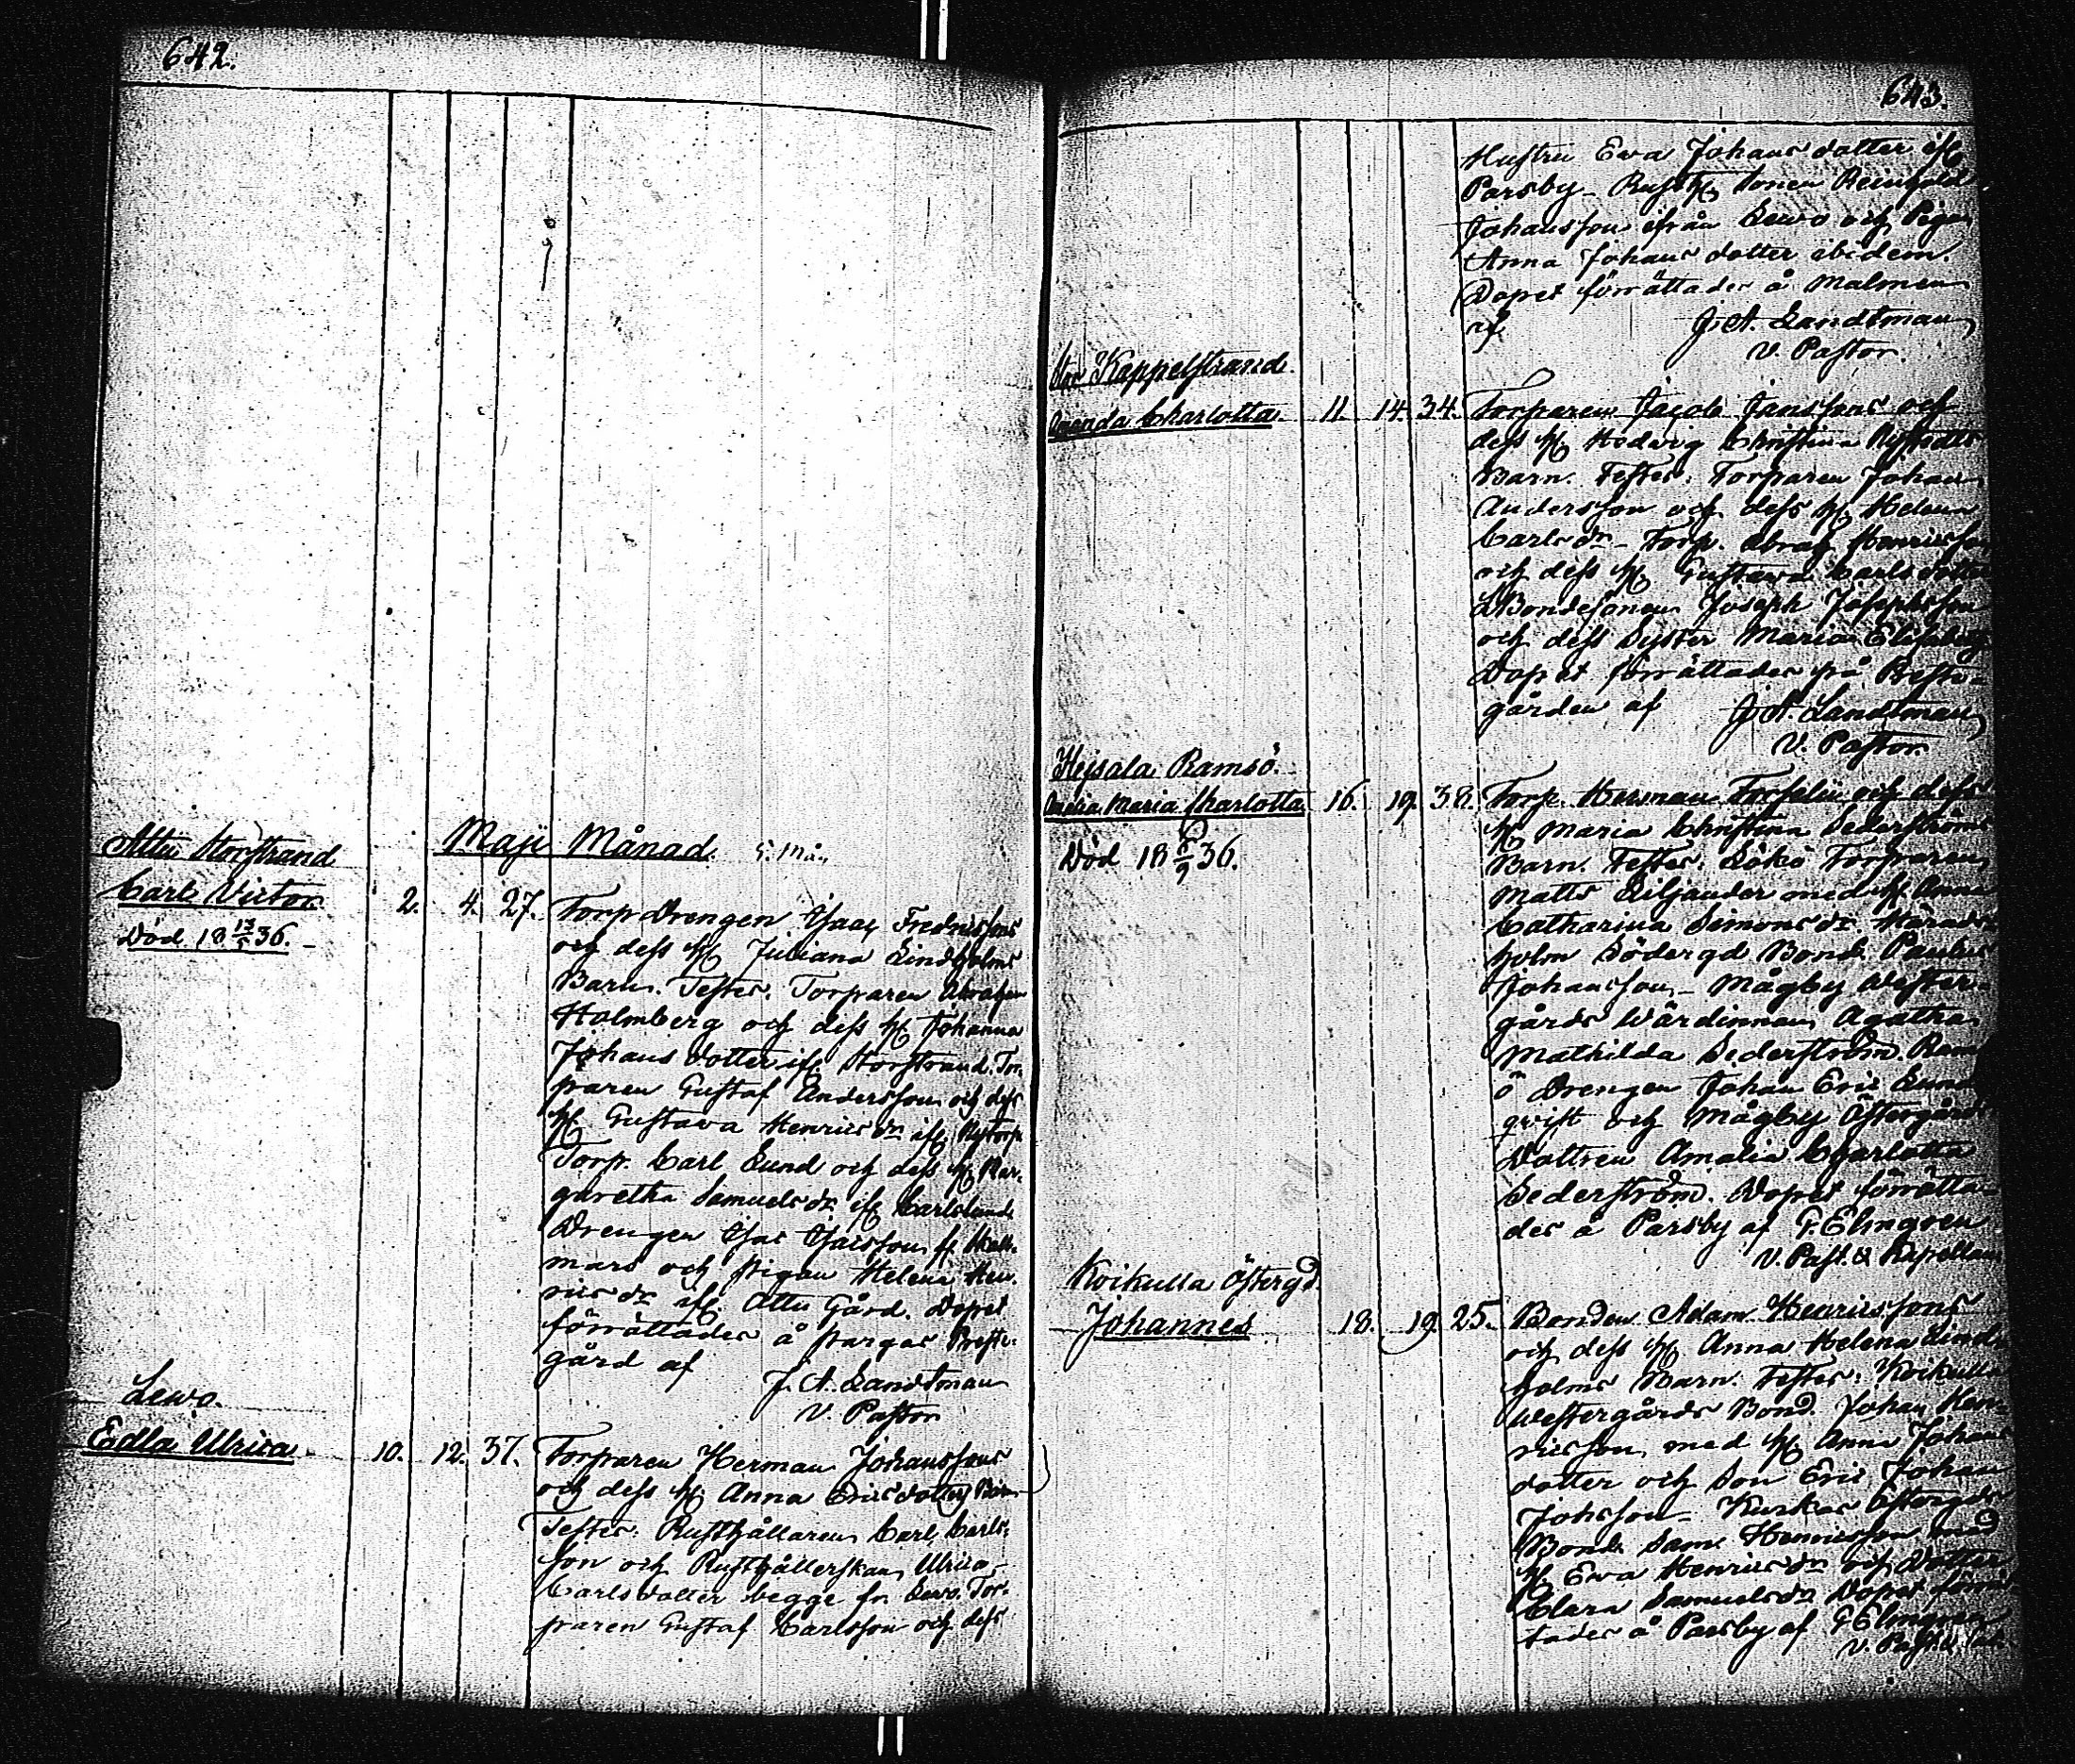 642.
Attu Storstrand
Maji Månad.
Carl Victor
2. 4. 27.
Död 18 13/5 36.
Torpdrengen Isaac Fredricssons
och dess H. Juliana Lindholms
Barn. Testes. Torparen Abraham
Holmberg och dess H. Johanna
Johans dotter if. Storstrand. Tor-
paren Gustaf Andersson och dess
H. Gustava Henricsdr if. Nytorp
Torp. Carl Lund och dess H. Mar-
garetha Samuelsdr if. Carlslund
Drengen Isac Isacsson
mars och pigan Helena Hen-
ricsdr if. Attu Gård. Dopet
förrättades å Pargas Preste-
gård af
J. A. Landtman
V. Pastor
Lewo.
Edla Ulrica
10. 12. 37.
Torparen Herman Johanssons
och dess H. Anna Ericsdotters Barn
Testes: Rusthållaren Carl Carls-
son och Rusthållerskan Ulrica
Carlsdotter begge fr. Lewo. Tor-
paren Gustaf Carlsson och dess
643.
Hustru Eva Johansdotter if.
Parsby - Rusth. Sonen Reinhold
Johansson ifrån Lewo och Pigan
Anna Johansdotter ibidem.
Dopet förrättades å Malmen
af J. A. Landtman
V. Pastor.
Stor Kappelstrand.
Amanda Charlotta.
11 14. 34.
Torparen Jacob Janssons och
dess H. Hedvig Christina
Barn. Testes: Torparen Johan
Andersson och dess H. Helena
Carlsdr - Torp. Abrah. Henricsson
och dess H. Gustava Carlsdotter
Bondesonen Joseph Josephsson
och dess Syster Maria Elisabeth
Dopet förrättades på Preste-
gården af J. A. Landtman
V. Pastor.
Hejsala Ramsö.
Amalia Maria Charlotta
16. 19. 38.
Död 18 5/9 36.
Torp. Herman Forselii och dess
H. Maria Christina Sederströms
Barn. Testes: Lökö Torparen
Matts Liljander med H. Anna
Catharina Simonsdr.
holm Södergd Bond. Paulus
Johansson - Mågby Wester-
gårds Wärdinnan Agatha
Mathilda Sederström. Rams-
ö Drengen Johan Eric Lund
qvist och Mågby Östergårds
Dottren Amalia Charlotta
Sederström. Dopet förrätta-
des å Parsby af G. Elmgren
V. Past. & Kapellan
Koikulla Östergd.
Johannes
18. 19. 25.
Bonden Adam Henricssons
och dess H. Anna Helena Lind
holms Barn. Testes: Koikulla
Westergårds Bond. Johan Hen-
ricsson med H. Anna Johans
dotter och Son Eric Johan
Johsson - Kurkas Östergds
Bond. Sam. Henricsson med
H. Eva Henricsdr och Dotter
Clara Samuelsdr. Dopet förrät-
tades å Parsby af G. Elmgren
V. Past.